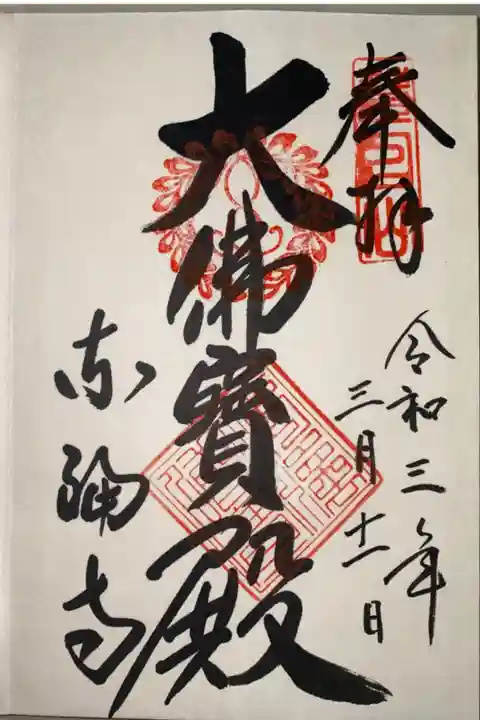 奉拝
令和三年
三月十一日
大佛寶殿
寺